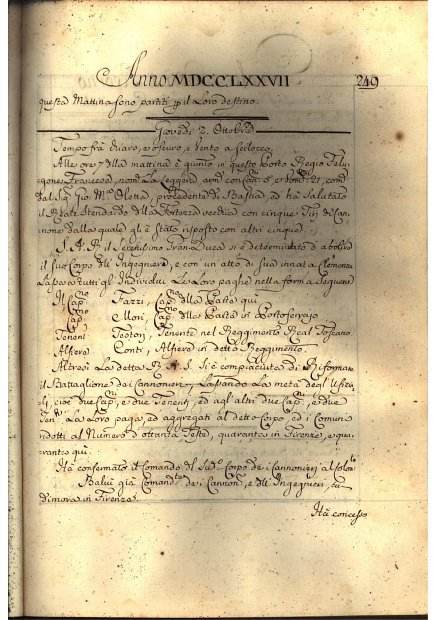 Anno MDCCLXXVII 249
questa Mattina sono partiti p il Loro destino.
Giovedì 2. Ottobre
Tempo frà chiaro, e oscuro, e Vento a Scilocco.
Alle ore 7 della mattina è giunto in questo Porto Regio Felu-
gone Francese, nom.to La Leggera arm.
dal Sig.r Gio. M.a Oletta, procedente di Bastia, ed ha Salutato
il Reale Stendardo della Fortezza vecchia con cinque Tiri di Can-
none dalla quale gli è Stato risposto con altri cinque.
S. A. R. il Serenissimo Gran-Duca si è determinato d'abolire
il suo Corpo dell'Ingegneria, e con un atto di sua innata Clemenza
Lascia a tutti gl'Individui Le Loro paghe nella forma Seguente
Il Cap.no Fazzi, Cap.no della Piazza qui
Cap.no Ellori, Cap.no della Piazza in Portoferrajo
Tenen.i Tenente nel Reggimento Real Toscano
Alfiere Conti, Alfiere in detto Reggimento.
Altresì La detta R. A. S. si è compiaciuta di Riformare
il Battaglione de i Cannonieri, Lasciando La metà degl'Ufizia-
li, cioè due Cap.ni, e due Tenenti, ed agl'altri due Cap.ni, e due
Ten.ti La Loro paga, ed aggregati al detto Corpo, ed i Comuni
ridotti al Numero d'ottanta Teste, quaranta in Firenze, e qua-
ranta qui.
Hà confermato il Comando del Sud.o Corpo de i Cannonieri al Colon.lo
già Comand.te de i Cannon.i, e dell'Ingegneri, en
dimora in Firenze.
Hà concesso